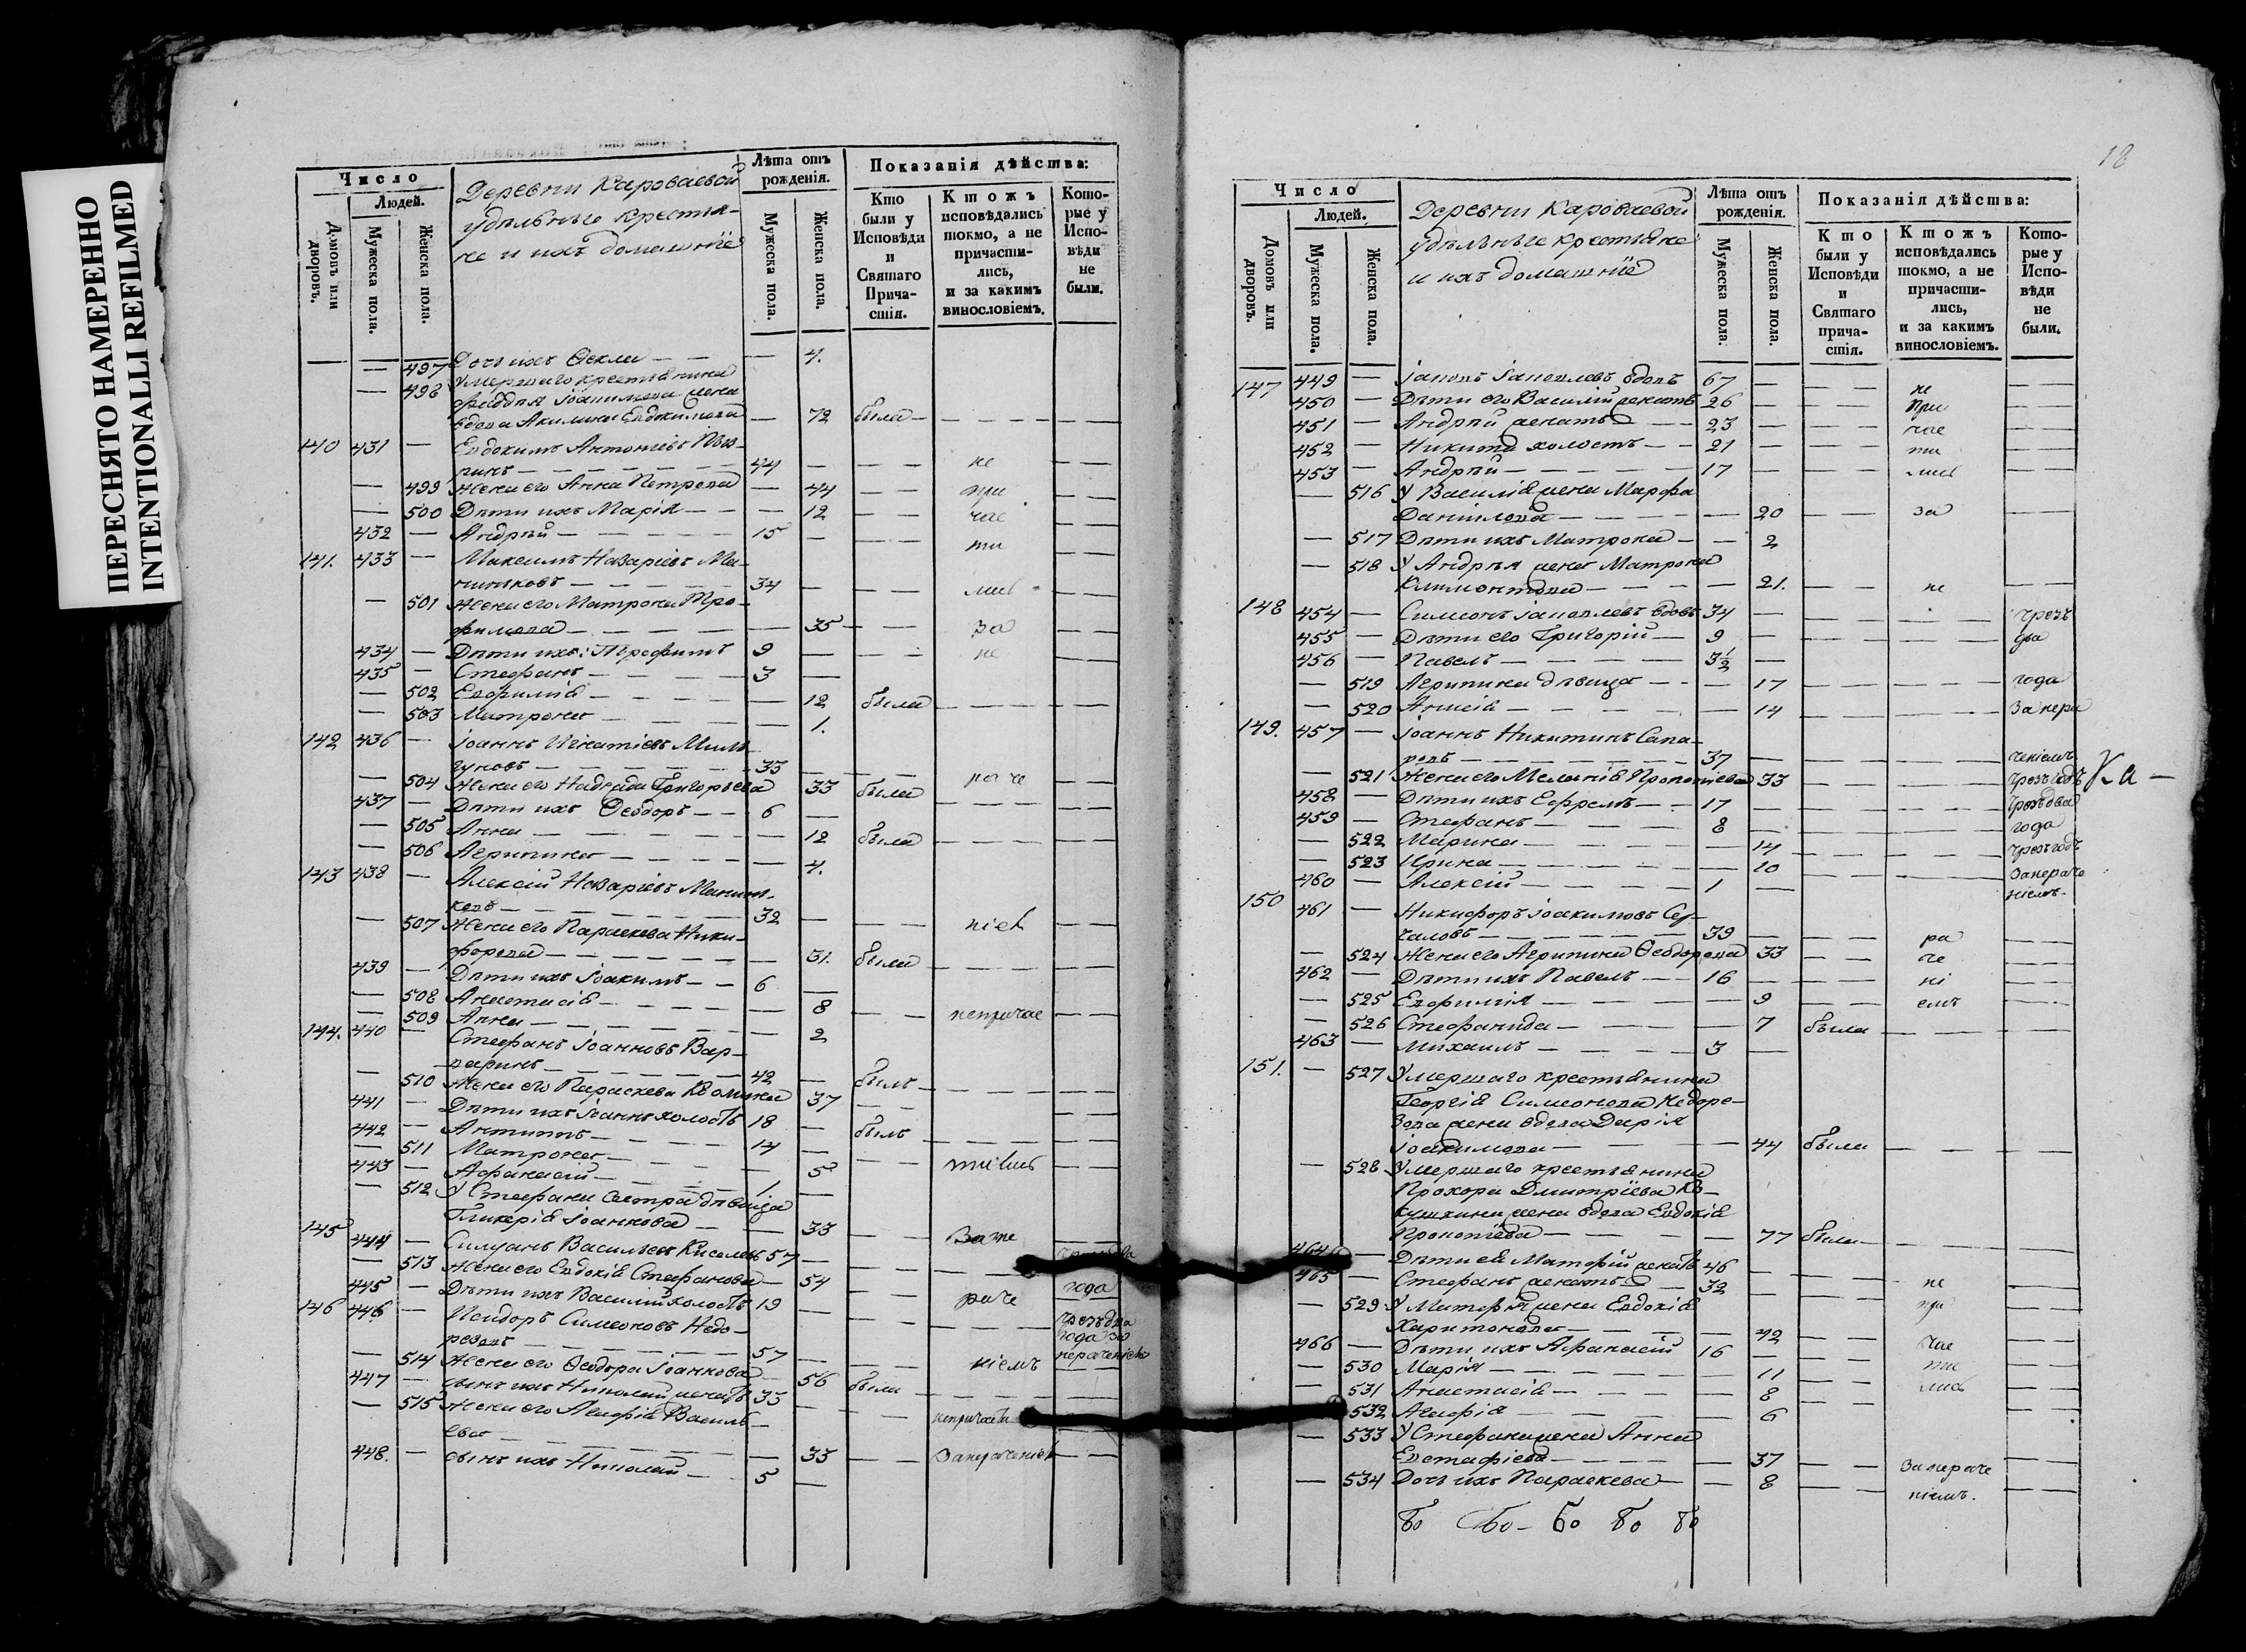 ПЕРЕСНЯТО НАМЕРЕННО
INTENTIONALLI REFILMED
Число
Людей.
Домовъ или дворовъ.
Мужеска пола.
Женска пола.
Деревни Кароваевой
удѣльные крестья-
не и ихъ домашніе
Лѣта отъ рожденія.
Мужеска пола.
Женска пола.
Показанія дѣйства:
Кто были у Исповѣди и Святаго Прича-стія.
Ктожъ исповѣдались токмо, а не причасти-лись, и за какимъ винословіемъ.
Кото-рые у Испо-вѣди не были.
— — 497 Дочь ихъ Ѳекла — — — 4.
— 498 Умершаго крестьянина
Іоакимова жена
вдова Акилина Евдокимова — 72 была — — — —
140 431 — Евдокимъ Антоніевъ
44 — — — не — —
— 499 Жена его Анна Петрова — 44 — — при — —
— 500 Дѣти ихъ Марія — — — 12 — — час — —
432 — Андрей — — — 15 — — — ти — —
141. 433 — Максимъ Назаріевъ Ма-
34 — — — лись — —
— 501 Жена его Матрона Тро-
фимова — — — 35 — — за — —
434 — Дѣти ихъ: Трофимъ 9 — — — не — —
435 — Стефанъ — — — 3 —
— 502 Евфимія — — — 12 была — — —
— 503 Матрона — — — 1.
142 436 — Іоаннъ Игнатіевъ Миль-
гуновъ — — — 33 — — — раче — —
— 504 Жена его Надежда Григорьева 33 была — — —
437 — Дѣти ихъ Ѳеодоръ — — 6 —
— 505 Анна — — — 12 была — — —
— 506 Агрипина — — — 4.
143 438 — Алексій Назаріевъ
32 — — — ніемъ — —
— 507 Жена его Параскева Ники-
форова — — — 31. была — — —
439 — Дѣти ихъ Іоакимъ — — 6 —
— 508 Анастасія — — — 8 — — непричас — —
— 509 Анна — — — 2
144. 440 — Стефанъ Іоанновъ Вар-
42 — былъ — — —
— 510 Жена его Параскева 37 — —
441 — Дѣти ихъ Іоаннъ холостъ 18 — былъ — — —
442 — Антипъ — — — 14 — — —
— 511 Матрона — — — 5
443 — Афанасій — — — 1 —
— 512 У Стефана сестра дѣвица
Гликерія Іоаннова — — 33 — — Зане — —
145 444 — Силуанъ Васильевъ Киселевъ 57 — — — —
— 513 Жена его Евдокія Стефанова — 54 — — года
445 — Дѣти ихъ Василій холостъ 19 — — — раче
146 446 — Исидоръ Симеоновъ Недо-
резовъ — — — 57 — — — чрезъ два года за нераченіемъ
— 514 Жена его Ѳеодора Іоаннова — 56 была — — —
447 — сынъ ихъ Николай женатъ 33 — — —
— 515 Жена его Агафія Василь-
ева — — — 33 — — Занераченіемъ — —
448. — сынъ ихъ Николай — — 5 —
18
Число
Людей.
Домовъ или дворовъ.
Мужеска пола.
Женска пола.
Деревни Кароваевой
удѣльные крестьяне
и ихъ домашніе
Лѣта отъ рожденія.
Мужеска пола.
Женска пола.
Показанія дѣйства:
Кто были у Исповѣди и Святаго прича-стія.
Ктожъ исповѣдались токмо, а не причасти-лись, и за какимъ винословіемъ.
Кото-рые у Испо-вѣди не были.
147 449 — Іаковъ Іаковлевъ вдовъ 67 — — — не — —
450 — Дѣти его Василій женатъ 26 — — — при — —
451 — Андрей женатъ — — 23 — — — час — —
452 — Никита холостъ — — 21 — — — ти — —
453 — Андрей — — — 17 — — — лись — —
— 516 У Василія жена Марфа
Даніилова — — — 20 — — за — —
— 517 Дѣти ихъ Матрона — — 2
— 518 У Андрея жена Матрона
Климонтова — — — 21. — — не — —
148 454 — Симеонъ Іаковлевъ вдовъ 34 — — — — чрезъ
455 — Дѣти его Григорій — 9 — — — — два
456 — Павелъ — — — 3½ —
— 519 Агрипина дѣвица — — 17 — — — — года
— 520 Анисія — — — 14 — — — — За нера
149. 457 — Іоаннъ Никитинъ Сапа-
ровъ — — — 37 — — — — ченіемъ
— 521 Жена его Меланія Прокопіева 33 — — — — чрезъ годъ Ка —
458 — Дѣти ихъ Ефремъ — — 17 — — — — чрезъ два
459 — Стефанъ — — — 8 — — — — года
— 522 Марина — — — 14 — — — — чрезъ годъ
— 523 Ирина — — — 10 — — — — Занераче
460 — Алексій — — — 1 — ніемъ.
150 461 — Никифоръ Іоакимовъ Се-
39 — — — ра — —
— 524 Жена его Агрипина Ѳеодорова 33 — — че — —
462 — Дѣти ихъ Павелъ — — 16 — — — ні — —
— 525 Евфимія — — — 9 — — емъ — —
— 526 Стефанида — — — 7 была — — —
463 — Михаилъ — — — 3 —
151. — 527 Умершаго крестьянина
Георгія Симеонова Недоре-
зова жена вдова Дарія
Іоакимова — — — 44 была — — —
— 528 Умершаго крестьянина
Прохора Дмитріева Ко-
кушкина жена вдова Евдокія
Прокопіева — — — 77 была — — —
464 — Дѣти ея Матфій женатъ 46 — — — — —
465 — Стефанъ женатъ — 32 — — — не — —
— 529 У Матфія жена Евдокія
Харитонова — — — 42 — — при — —
466 — Дѣти ихъ Афанасій 16 — — — час — —
— 530 Марія — — — 11 — — ти — —
— 531 Анастасія — — — 8 — — лись — —
532 Агафія — — — 6 — —
— 533 У Стефана жена Анна
Евстафіева — — — 37 — — Занераче — —
— 534 Дочь ихъ Параскева — — 8 — — ніемъ. — —